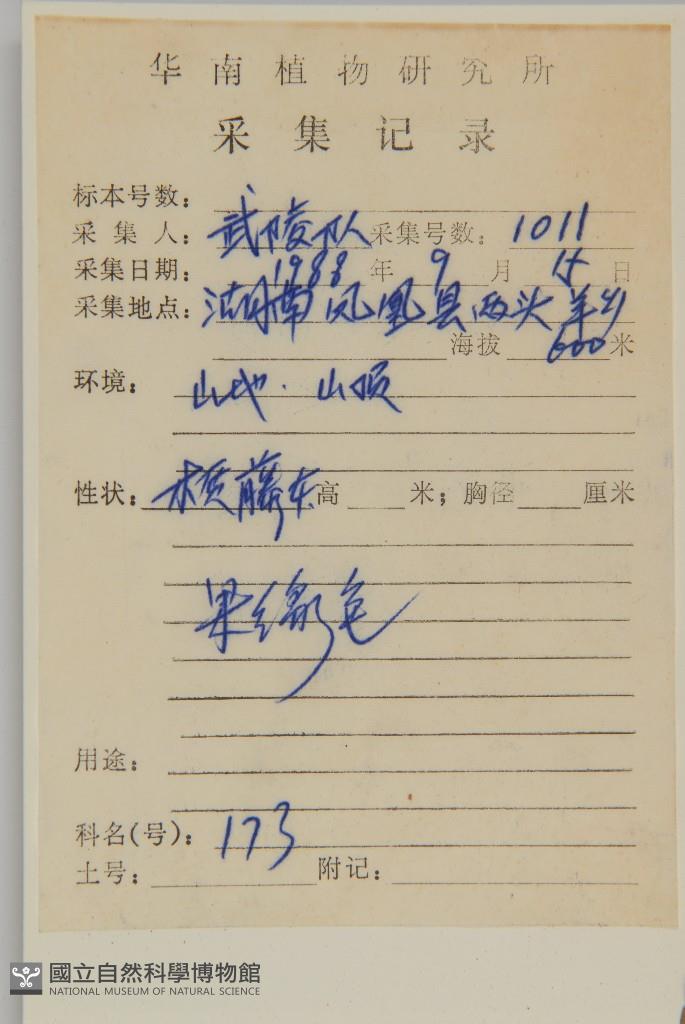 华南植物研究所
采集记录
标本号数:
采集人: 武陵队 采集号数: 1011
采集日期: 1988年9月15日
采集地点: 湖南凤凰县两头羊乡
海拔 600 米
环境: 山地·山顶
性状: 木质藤本 高 米; 胸径 厘米
果绿色
用途:
科名(号): 173
土号: 附记:
國立自然科學博物館
NATIONAL MUSEUM OF NATURAL SCIENCE